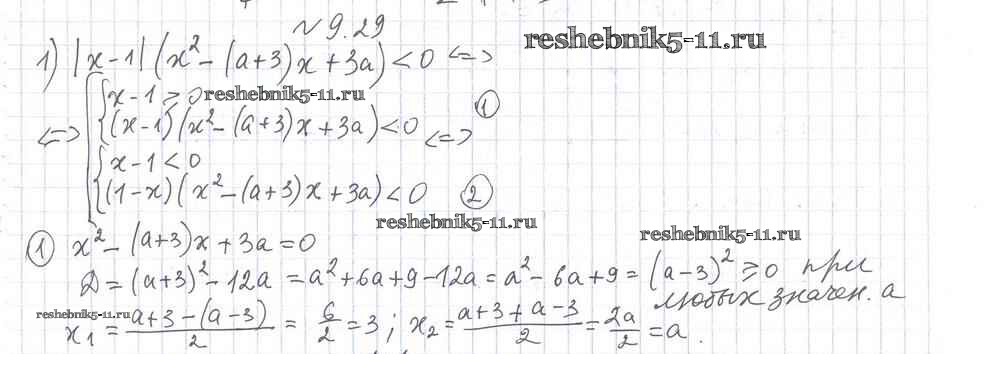 № 9.29
reshebnik5-11.ru
1) |x-1| (x² - (a+3)x + 3a) < 0 <=>
x - 1 ≥ 0 reshebnik5-11.ru
<=> (x-1)(x² - (a+3)x + 3a) < 0 <=> ①
x - 1 < 0
(1-x)(x² - (a+3)x + 3a) < 0 ②
reshebnik5-11.ru
① x² - (a+3)x + 3a = 0
reshebnik5-11.ru
Д = (a+3)² - 12a = a² + 6a + 9 - 12a = a² - 6a + 9 = (a-3)² ≥ 0 при
любых значен. a
reshebnik5-11.ru
x₁ = (a+3-(a-3))/2 = 6/2 = 3; x₂ = (a+3+a-3)/2 = 2a/2 = a.